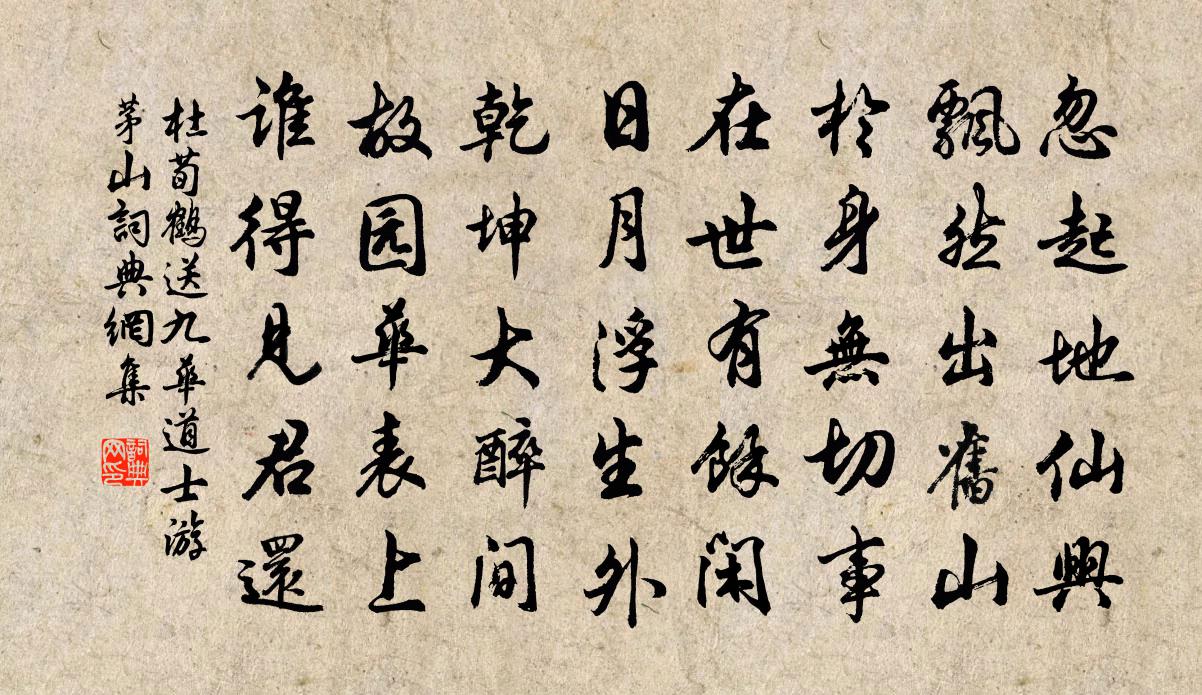 忽起地仙興
飄然出舊山
於身無切事
在世有餘閑
日月浮生外
乾坤大醉間
故园華表上
谁得見君還
杜荀鶴送九華道士游
茅山詞典網集
詞典网印